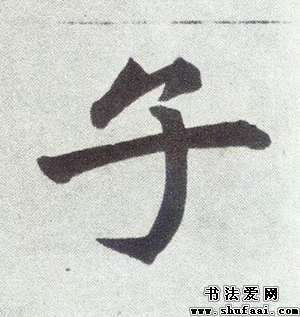 于
书法爱网
www.shufaai.com